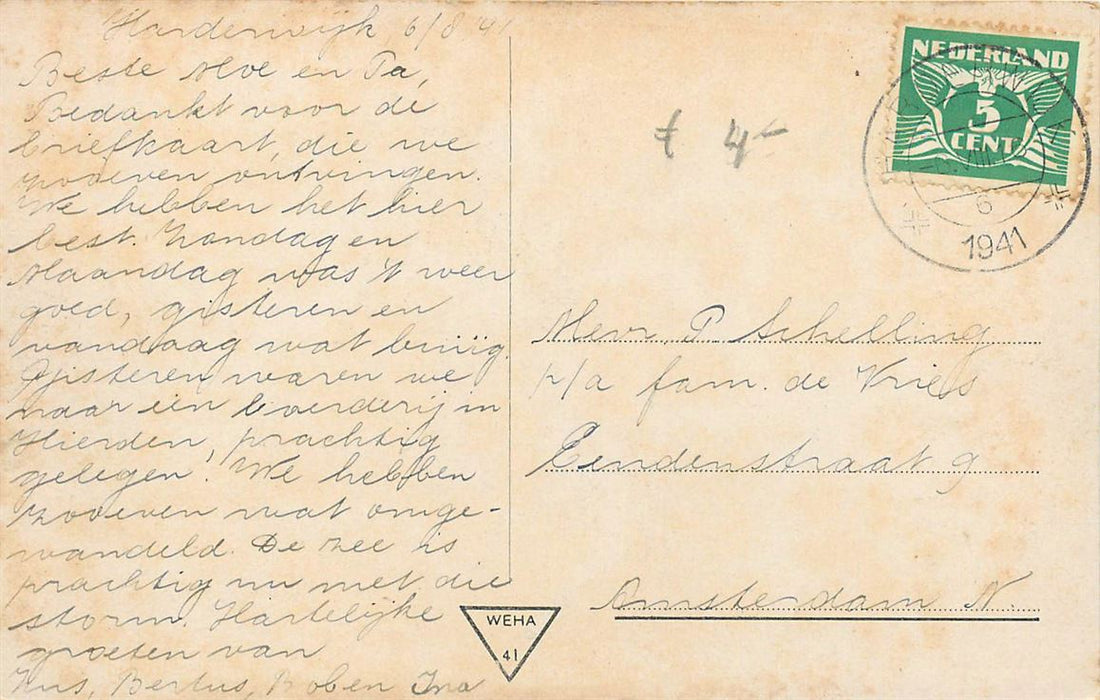 Harderwijk, 6/8 '41
Beste Moe en Pa,
Bedankt voor de
briefkaart, die we
zooeven ontvingen.
We hebben het hier
best. Zondag en
Maandag was 't weer
goed, gisteren en
vandaag wat buiïg.
Gisteren waren we
naar een boerderij in
Hierden, prachtig
gelegen! We hebben
zooeven wat omge-
wandeld. De zee is
prachtig nu met die
storm. Hartelijke
groeten van
Zus, Bertus, Bob en Ina
NEDERLAND
5
CENT
6
1941
4-
Mevr. P. Schelling
p/a fam. de Vries
Eendenstraat 9
Amsterdam N.
WEHA
41